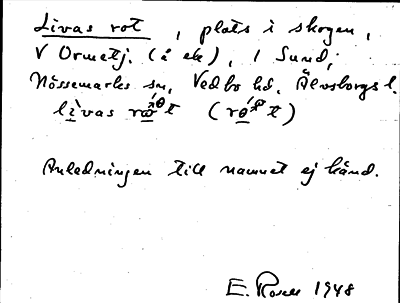 Livas rot, plats i skogen,
V Ormetj. (å ek), i Sund,
Nössemarks sn, Vedbo hd, Älvsborgs l.
Anledningen till namnet ej känd.
1948